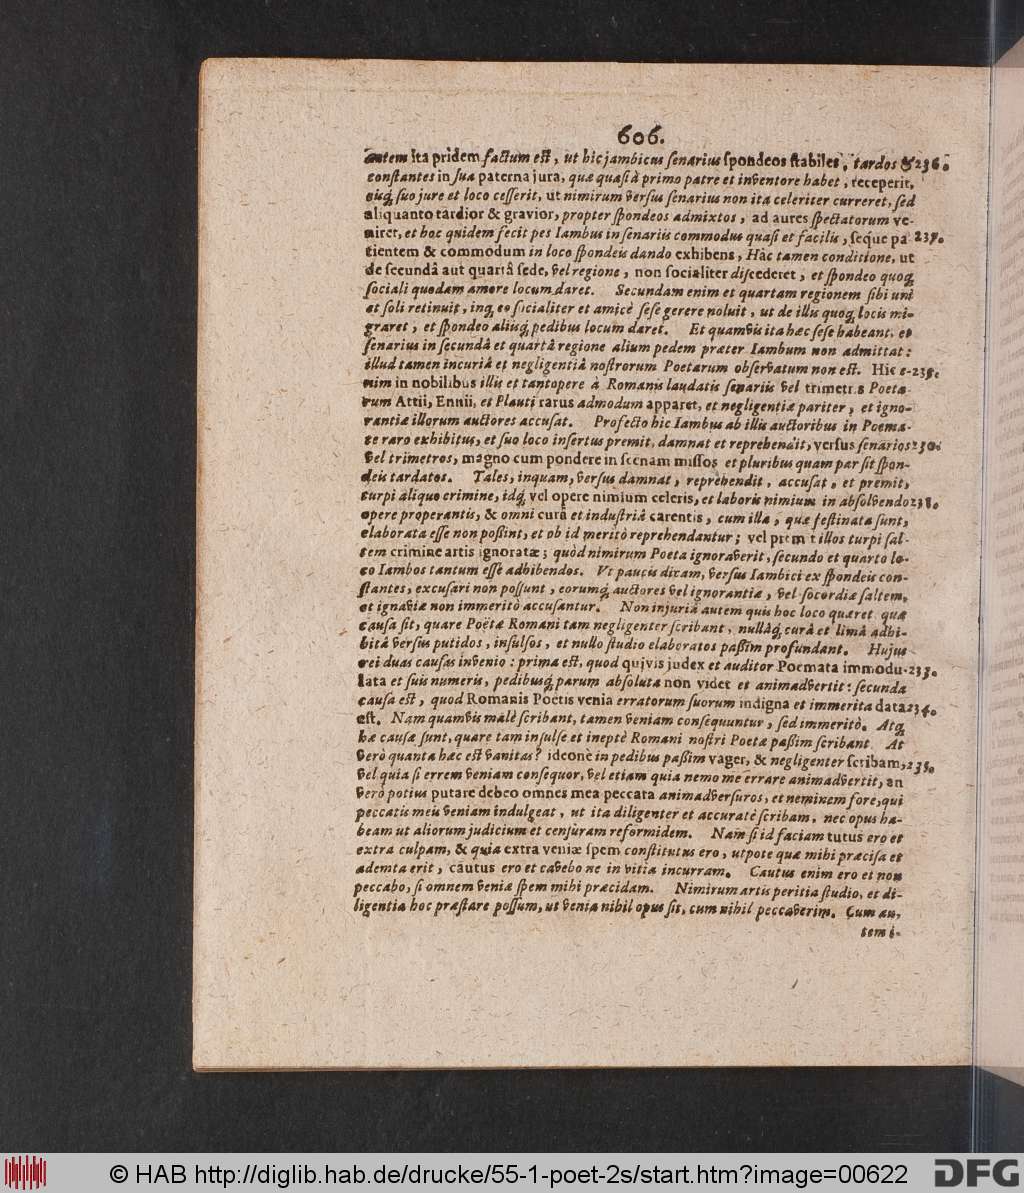 606.
autem ita pridem factum est, ut hic jambicus senarius spondeos stabiles, tardos & 236.
constantes in sua paterna jura, quæ quasi à primo patre et inventore habet, receperit,
eisq; suo jure et loco cesserit, ut nimirum versus senarius non ita celeriter curreret, sed
aliquanto tardior & gravior, propter spondeos admixtos, ad aures spectatorum ve-
niret, et hoc quidem fecit pes Iambus in senariis commodus quasi et facilis, seque pa 237.
tientem & commodum in loco spondeis dando exhibens, Hàc tamen conditione, ut
de secundâ aut quartâ sede, vel regione, non socialiter discederet, et spondeo quoq;
sociali quodam amore locum daret. Secundam enim et quartam regionem sibi uni
et soli retinuit, inq; eo socialiter et amicè sese gerere noluit, ut de illis quoq; locis mi-
graret, et spondeo aliisq; pedibus locum daret. Et quamvis ita hæc sese habeant, et
senarius in secundâ et quartâ regione alium pedem præter Iambum non admittat:
illud tamen incuriâ et negligentiâ nostrorum Poetarum observatum non est. Hic e-238.
nim in nobilibus illis et tantopere à Romanis laudatis senariis vel trimetris Poeta-
rum Attii, Ennii, et Plauti rarus admodum apparet, et negligentiæ pariter, et igno-
rantiæ illorum auctores accusat. Profecto hic Iambus ab illis auctoribus in Poema-
te raro exhibitus, et suo loco insertus premit, damnat et reprehendit, versus senarios 230.
vel trimetros, magno cum pondere in scenam missos et pluribus quam par sit spon-
deis tardatos. Tales, inquam, versus damnat, reprehendit, accusat, et premit,
turpi aliquo crimine, idq; vel opere nimium celeris, et laboris nimium in absolvendo 238.
opere properantis, & omni curâ et industriâ carentis, cum illa, quæ festinata sunt,
elaborata esse non possint, et ob id meritò reprehendantur; vel premit illos turpi sal-
tem crimine artis ignoratæ; quòd nimirum Poeta ignoraverit, secundo et quarto lo-
co Iambos tantum esse adhibendos. Vt paucis dicam, versus Iambici ex spondeis con-
stantes, excusari non possunt, eorumq; auctores vel ignorantiæ, vel socordiæ saltem,
et ignaviæ non immeritò accusantur. Non injuriâ autem quis hoc loco quæret quæ
causa sit, quare Poëtæ Romani tam negligenter scribant, nullâq; curâ et limâ adhi-
bitâ versus putidos, insulsos, et nullo studio elaboratos passim profundant. Hujus
rei duas causas invenio: prima est, quod quivis judex et auditor Poemata immodu-233.
lata et suis numeris, pedibusq; parum absoluta non videt et animadvertit: secunda
causa est, quod Romanis Poetis venia erratorum suorum indigna et immerita data 234.
est. Nam quamvis malè scribant, tamen veniam consequuntur, sed immeritò. Atq;
hæ causæ sunt, quare tam insulse et ineptè Romani nostri Poetæ passim scribant. At
verò quanta hæc est vanitas? ideonè in pedibus passim vager, & negligenter scribam, 235.
vel quia si errem veniam consequor, vel etiam quia nemo me errare animadvertit, an
verò potius putare debeo omnes mea peccata animadversuros, et neminem fore, qui
peccatis meis veniam indulgeat, ut ita diligenter et accuratè scribam, nec opus ha-
beam ut aliorum judicium et censuram reformidem. Nam si id faciam tutus ero et
extra culpam, & quia extra veniæ spem constitutus ero, utpote quæ mihi præcisa et
ademta erit, cautus ero et cavebo ne in vitia incurram. Cautus enim ero et non
peccabo, si omnem veniæ spem mihi præcidam. Nimirum artis peritia studio, et di-
ligentia hoc præstare possum, ut veniâ nihil opus sit, cum nihil peccaverim. Cum au-
tem i-
© HAB http://diglib.hab.de/drucke/55-1-poet-2s/start.htm?image=00622
DFG